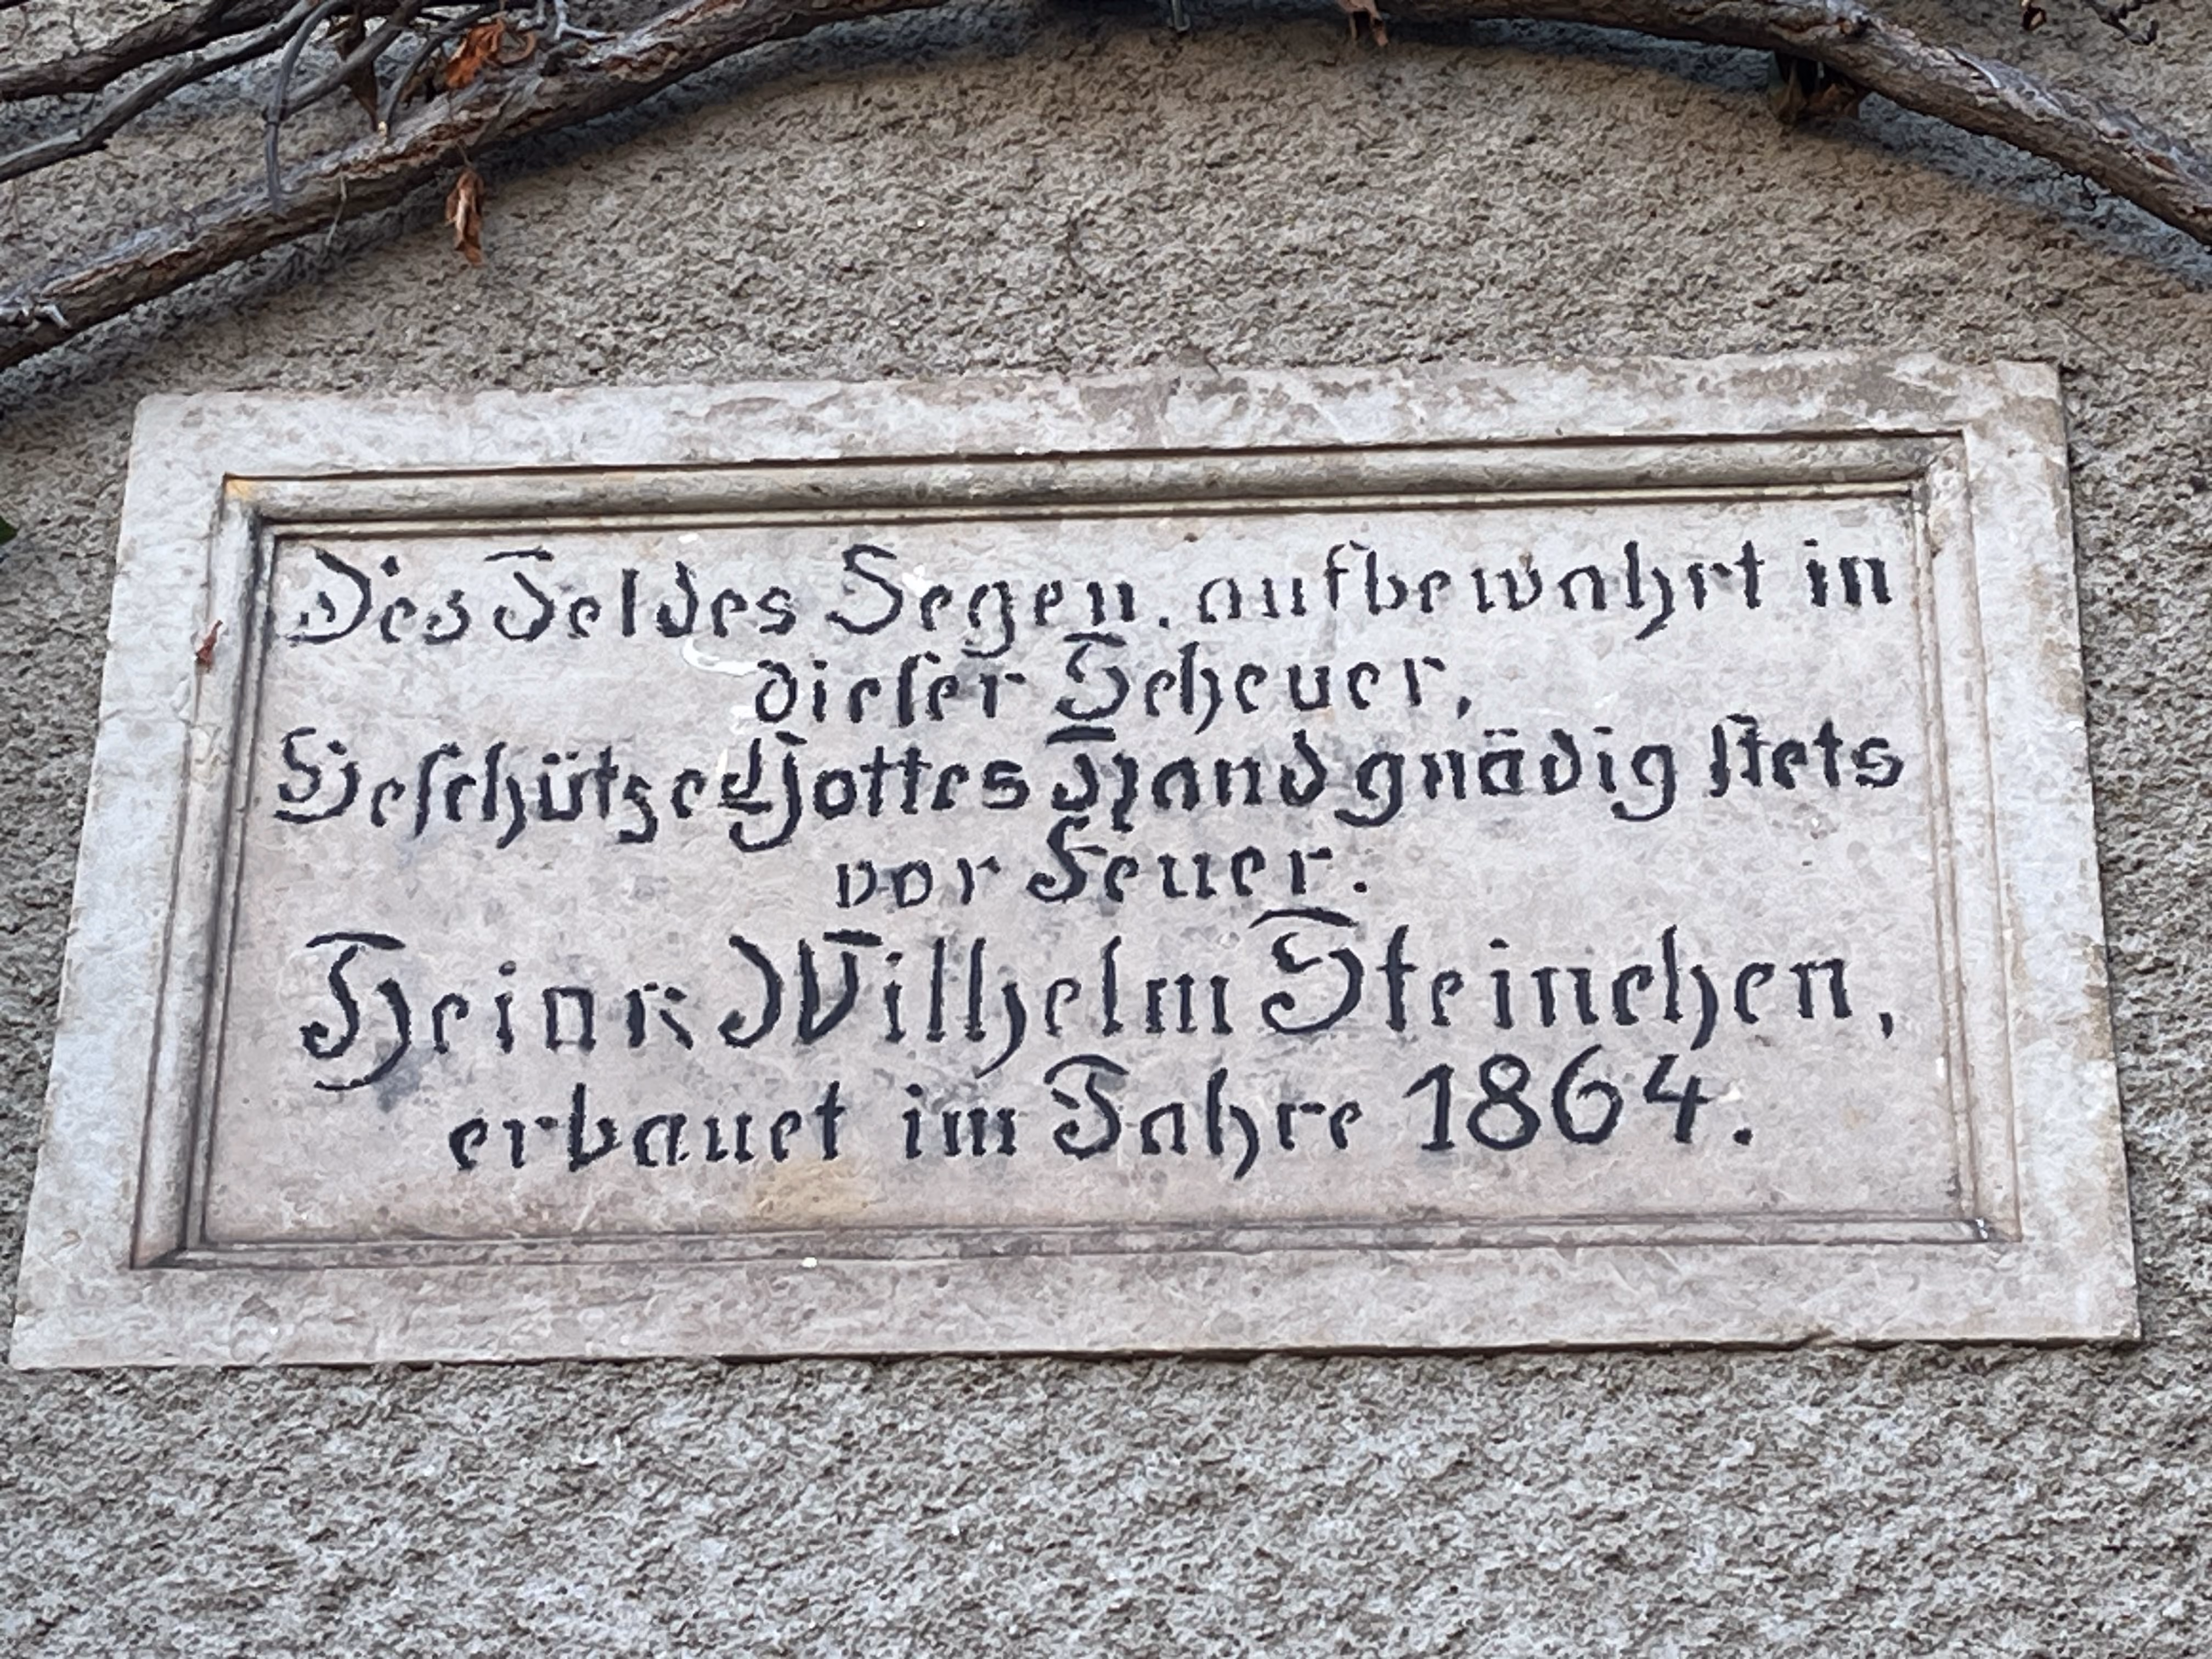 Des Feldes Segen, aufbewahrt in
dieser Scheuer,
Beschütze Gottes Hand gnädig stets
vor Feuer.
Heinr. Wilhelm Steinchen,
erbauet im Jahre 1864.